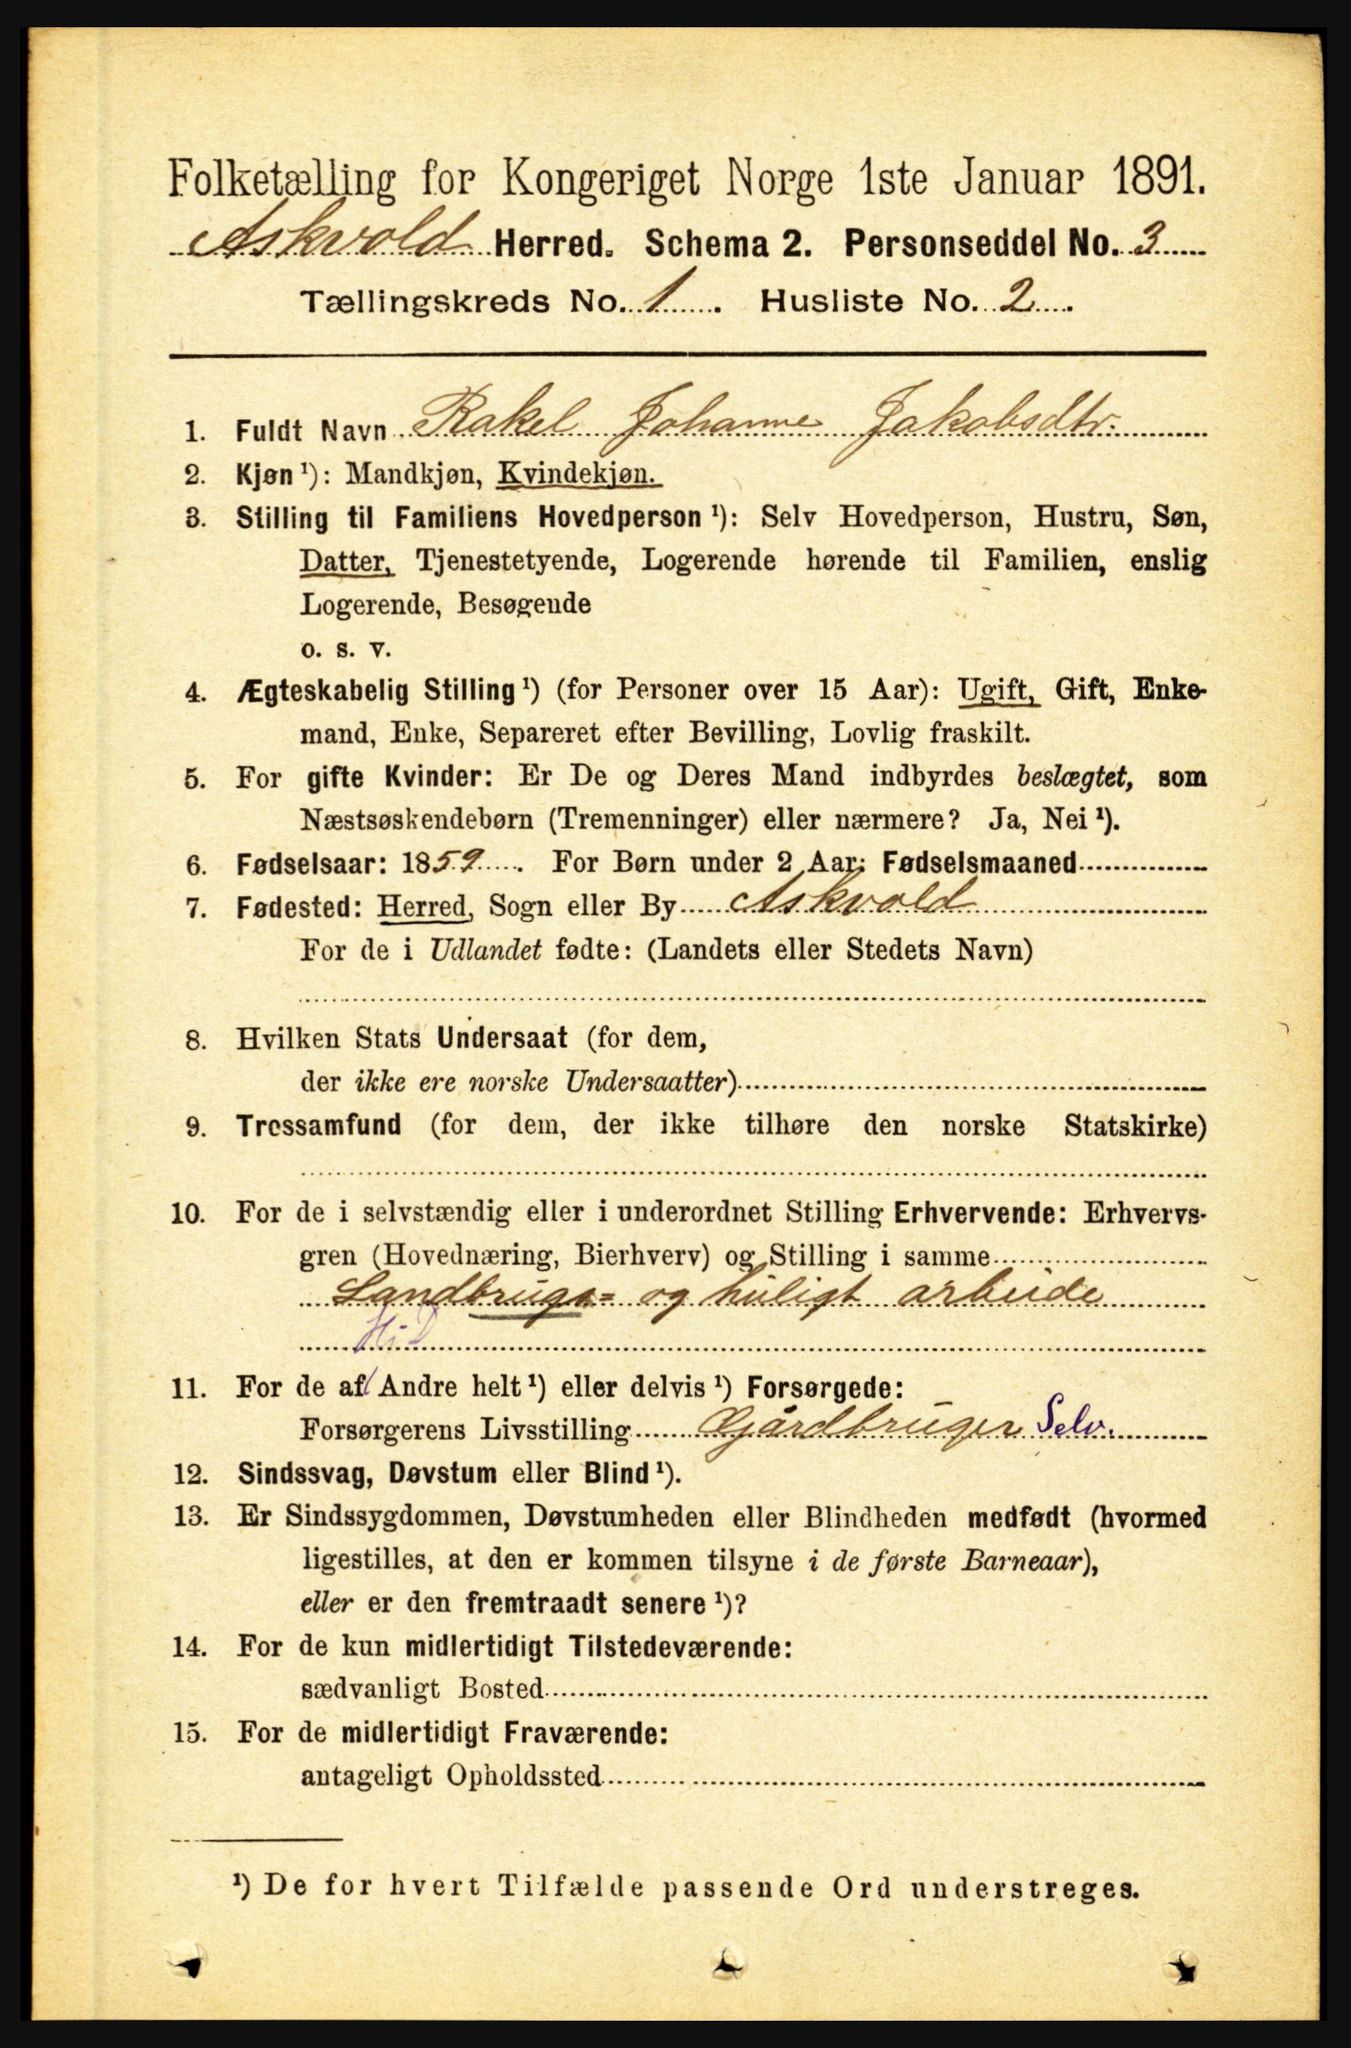 Folketælling for Kongeriget Norge 1ste Januar 1891.
Askvold Herred. Schema 2. Personseddel No. 3
Tællingskreds No. 1. Husliste No. 2.
1. Fuldt Navn Rakel Johanne Jakobsdtr.
2. Kjøn ¹): Mandkjøn, Kvindekjøn.
3. Stilling til Familiens Hovedperson ¹): Selv Hovedperson, Hustru, Søn,
Datter, Tjenestetyende, Logerende hørende til Familien, enslig
Logerende, Besøgende
o. s. v.
4. Ægteskabelig Stilling ¹) (for Personer over 15 Aar): Ugift, Gift, Enke-
mand, Enke, Separeret efter Bevilling, Lovlig fraskilt.
5. For gifte Kvinder: Er De og Deres Mand indbyrdes beslægtet, som
Næstsøskendebørn (Tremenninger) eller nærmere? Ja, Nei ¹).
6. Fødselsaar: 1859. For Børn under 2 Aar: Fødselsmaaned
7. Fødested: Herred, Sogn eller By Askvold
For de i Udlandet fødte: (Landets eller Stedets Navn)
8. Hvilken Stats Undersaat (for dem,
der ikke ere norske Undersaatter)
9. Trossamfund (for dem, der ikke tilhøre den norske Statskirke)
10. For de i selvstændig eller i underordnet Stilling Erhvervende: Erhvervs-
gren (Hovednæring, Bierhverv) og Stilling i samme
Landbrugs= og huligt arbeide
11. For de af Andre helt ¹) eller delvis ¹) Forsørgede:
Forsørgerens Livsstilling Gjårdbruger Selv.
12. Sindssvag, Døvstum eller Blind ¹).
13. Er Sindssygdommen, Døvstumheden eller Blindheden medfødt (hvormed
ligestilles, at den er kommen tilsyne i de første Barneaar),
eller er den fremtraadt senere ¹)?
14. For de kun midlertidigt Tilstedeværende:
sædvanligt Bosted
15. For de midlertidigt Fraværende:
antageligt Opholdssted
¹) De for hvert Tilfælde passende Ord understreges.